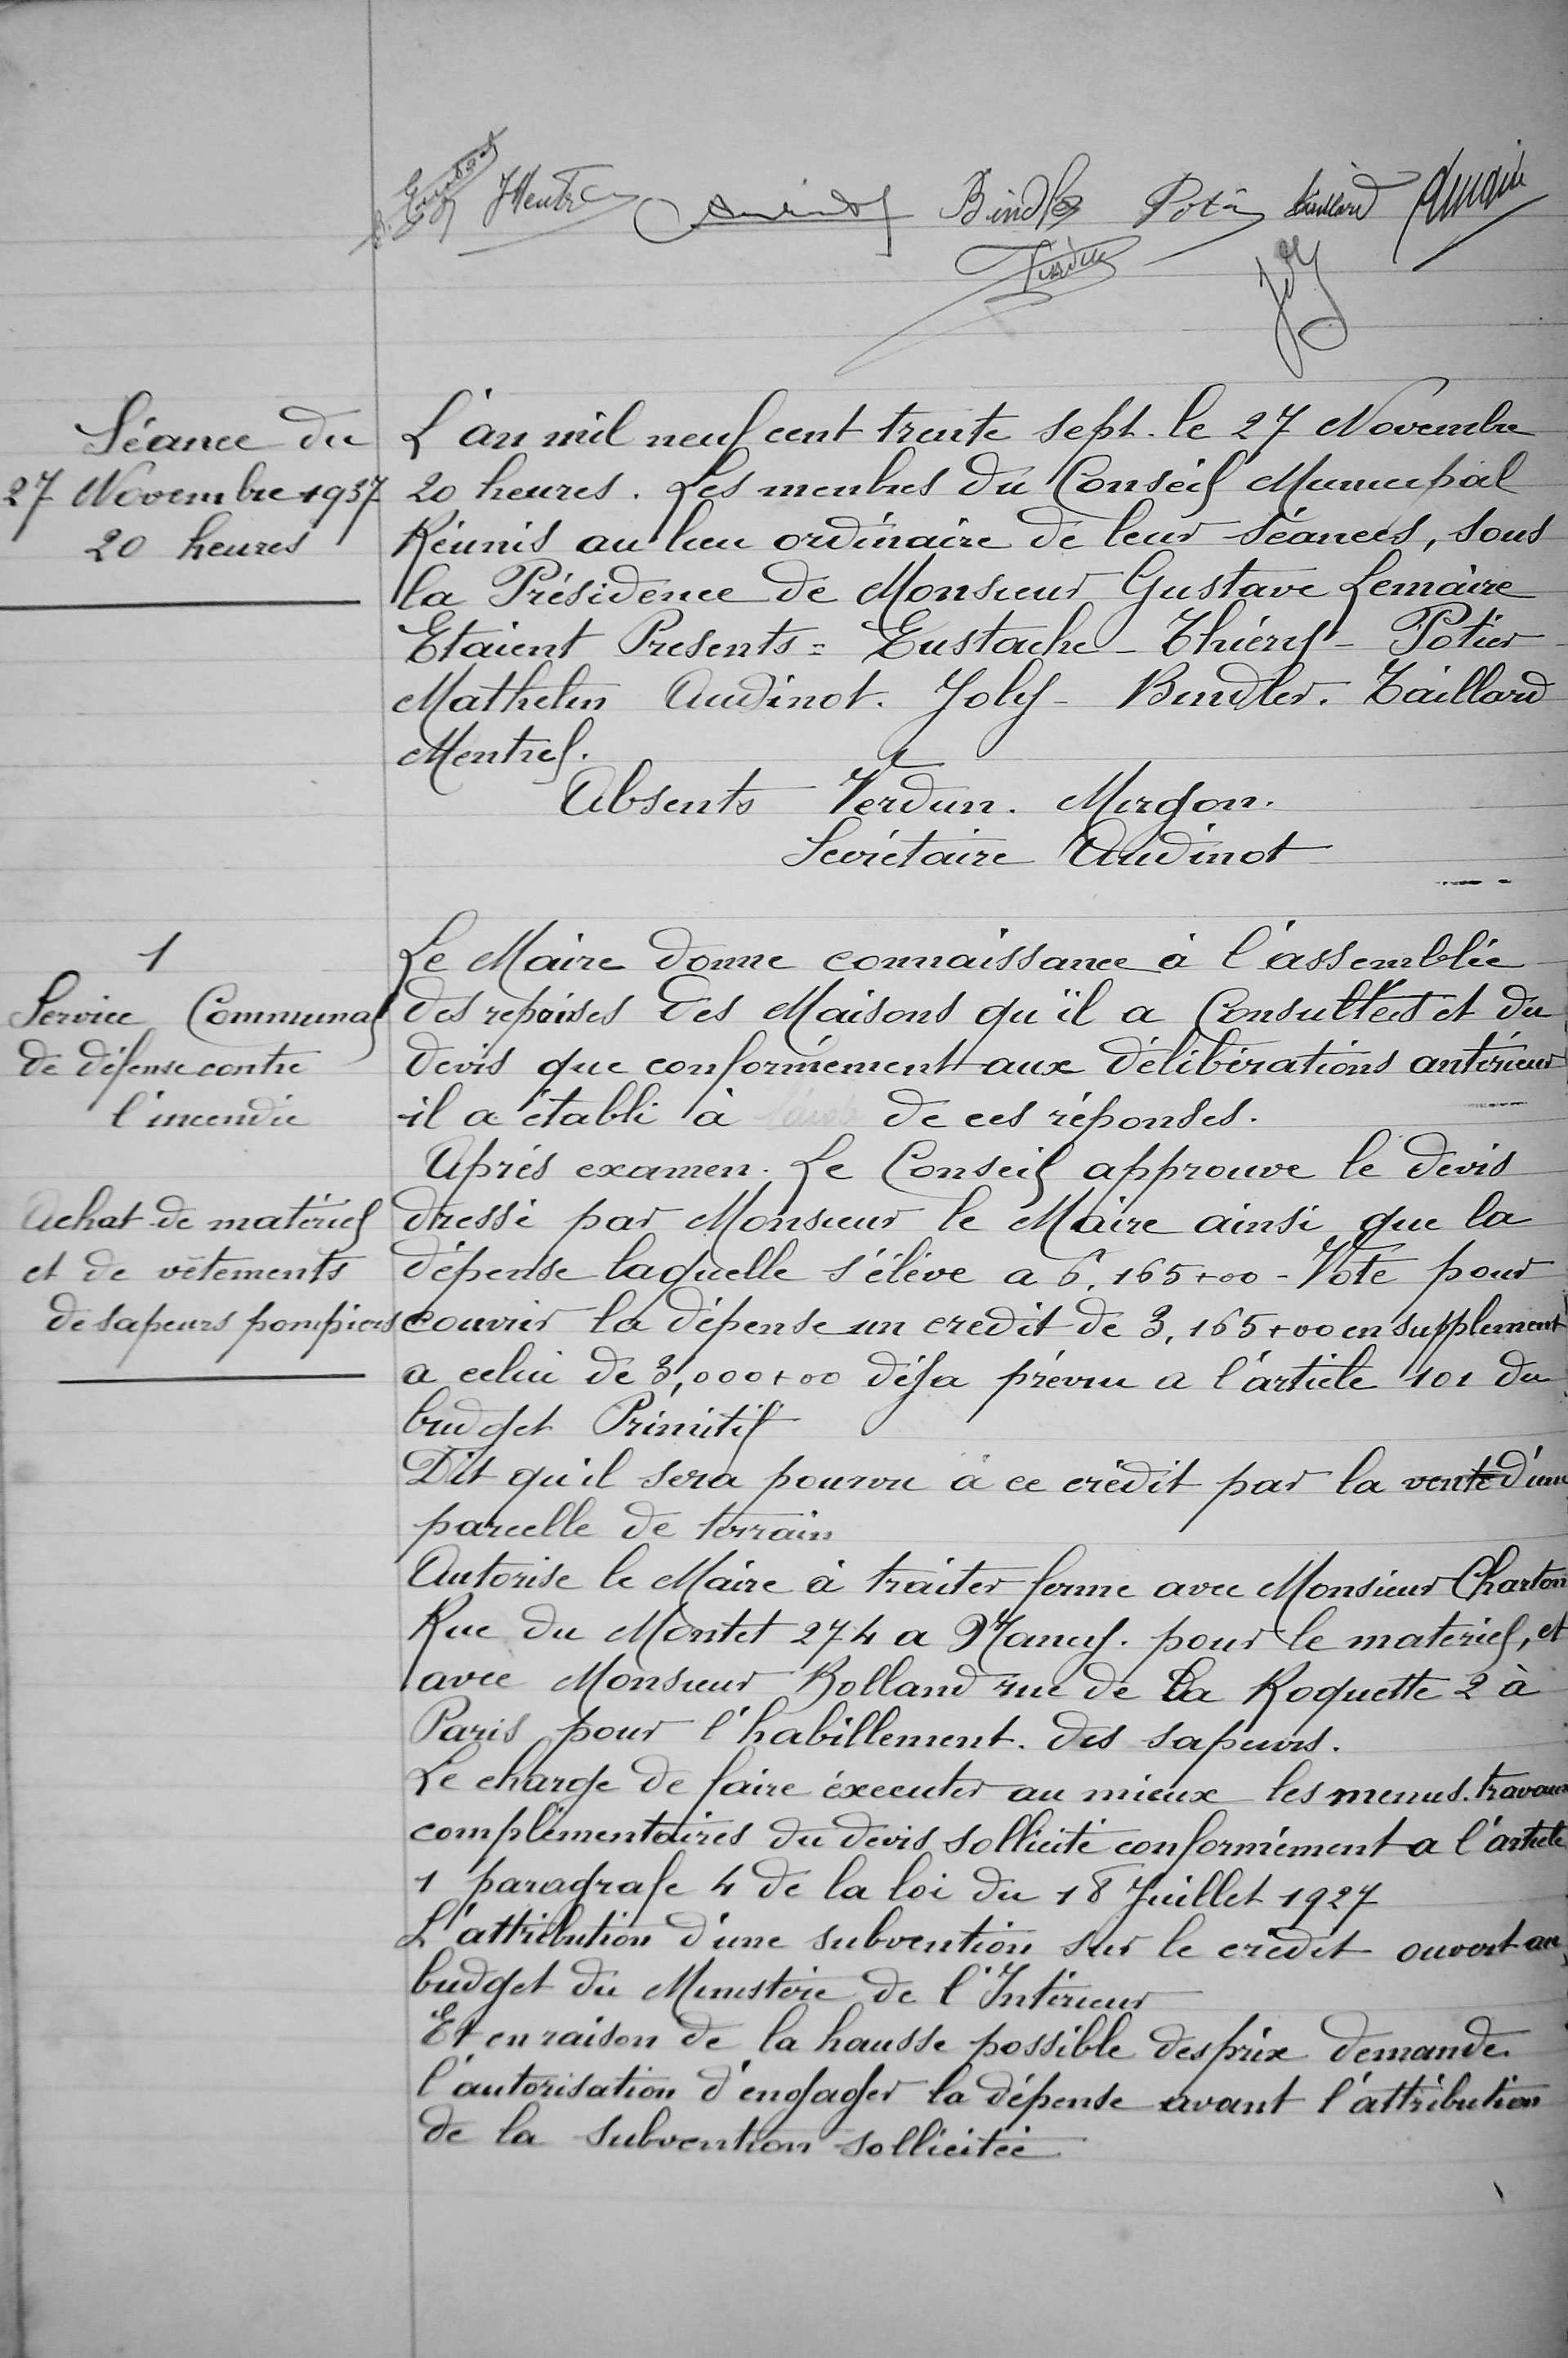 Bindler Potier Taillard
Joly
Séance du
27 Novembre 1937
20 heures
L'an mil neuf cent trente sept. le 27 Novembre
20 heures. Les membres du Conseil Municipal
Réunis au lieu ordinaire de leur séances, sous
la Présidence de Monsieur Gustave Lemaire
Etaient Presents = Eustache - Thiéry - Potier -
Mathelin Audinot. Joly - Bindler. Taillard
Mentrel.
Absents Verdun. Margon.
Secrétaire Audinot
1
Service Communal
de défense contre
l'incendie
Achat de matériel
et de vêtements
de sapeurs pompiers
Le Maire donne connaissance à l'assemblée
des reponses des Maisons qu'il a Consultées et du
devis que conformément aux délibérations antérieur
il a établi à l'aide de ces réponses.
Après examen. Le Conseil approuve le devis
dressé par Monsieur le Maire ainsi que la
dépense laquelle s'élève a 6,165+00 - Vote pour
couvrir la dépense un credit de 3,165+00 en supplement
a celui de 3,000+00 déja prévu a l'article 101 du
budget Primitif
Dit qu'il sera pourvu à ce crédit par la vente d'une
parcelle de terrain
Autorise le Maire à traiter ferme avec Monsieur Charton
Rue du Montet 274 a Nancy. pour le matériel, et
avec Monsieur Rolland rue de La Roquette 2 à
Paris pour l'habillement. des sapeurs.
Le charge de faire éxecuter au mieux les menus. travaux
complémentaires du devis sollicité conformément a l'article
1 paragrafe 4 de la loi du 18 Juillet 1927
L'attribution d'une subvention sur le crédit ouvert au
budget du Ministère de l'Intérieur
Et en raison de la hausse possible des prix demande
l'autorisation d'engager la dépense avant l'attribution
de la subvention sollicitée